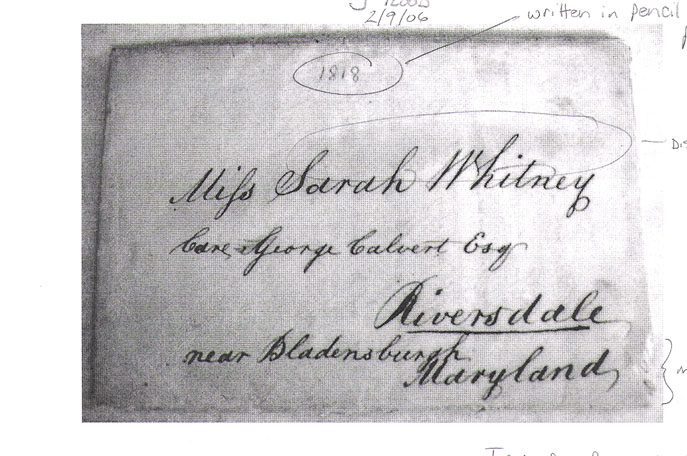 2/9/06
written in pencil
1818
Miss Sarah Whitney
Care George Calvert Esq
Riversdale
near Bladensburgh
Maryland